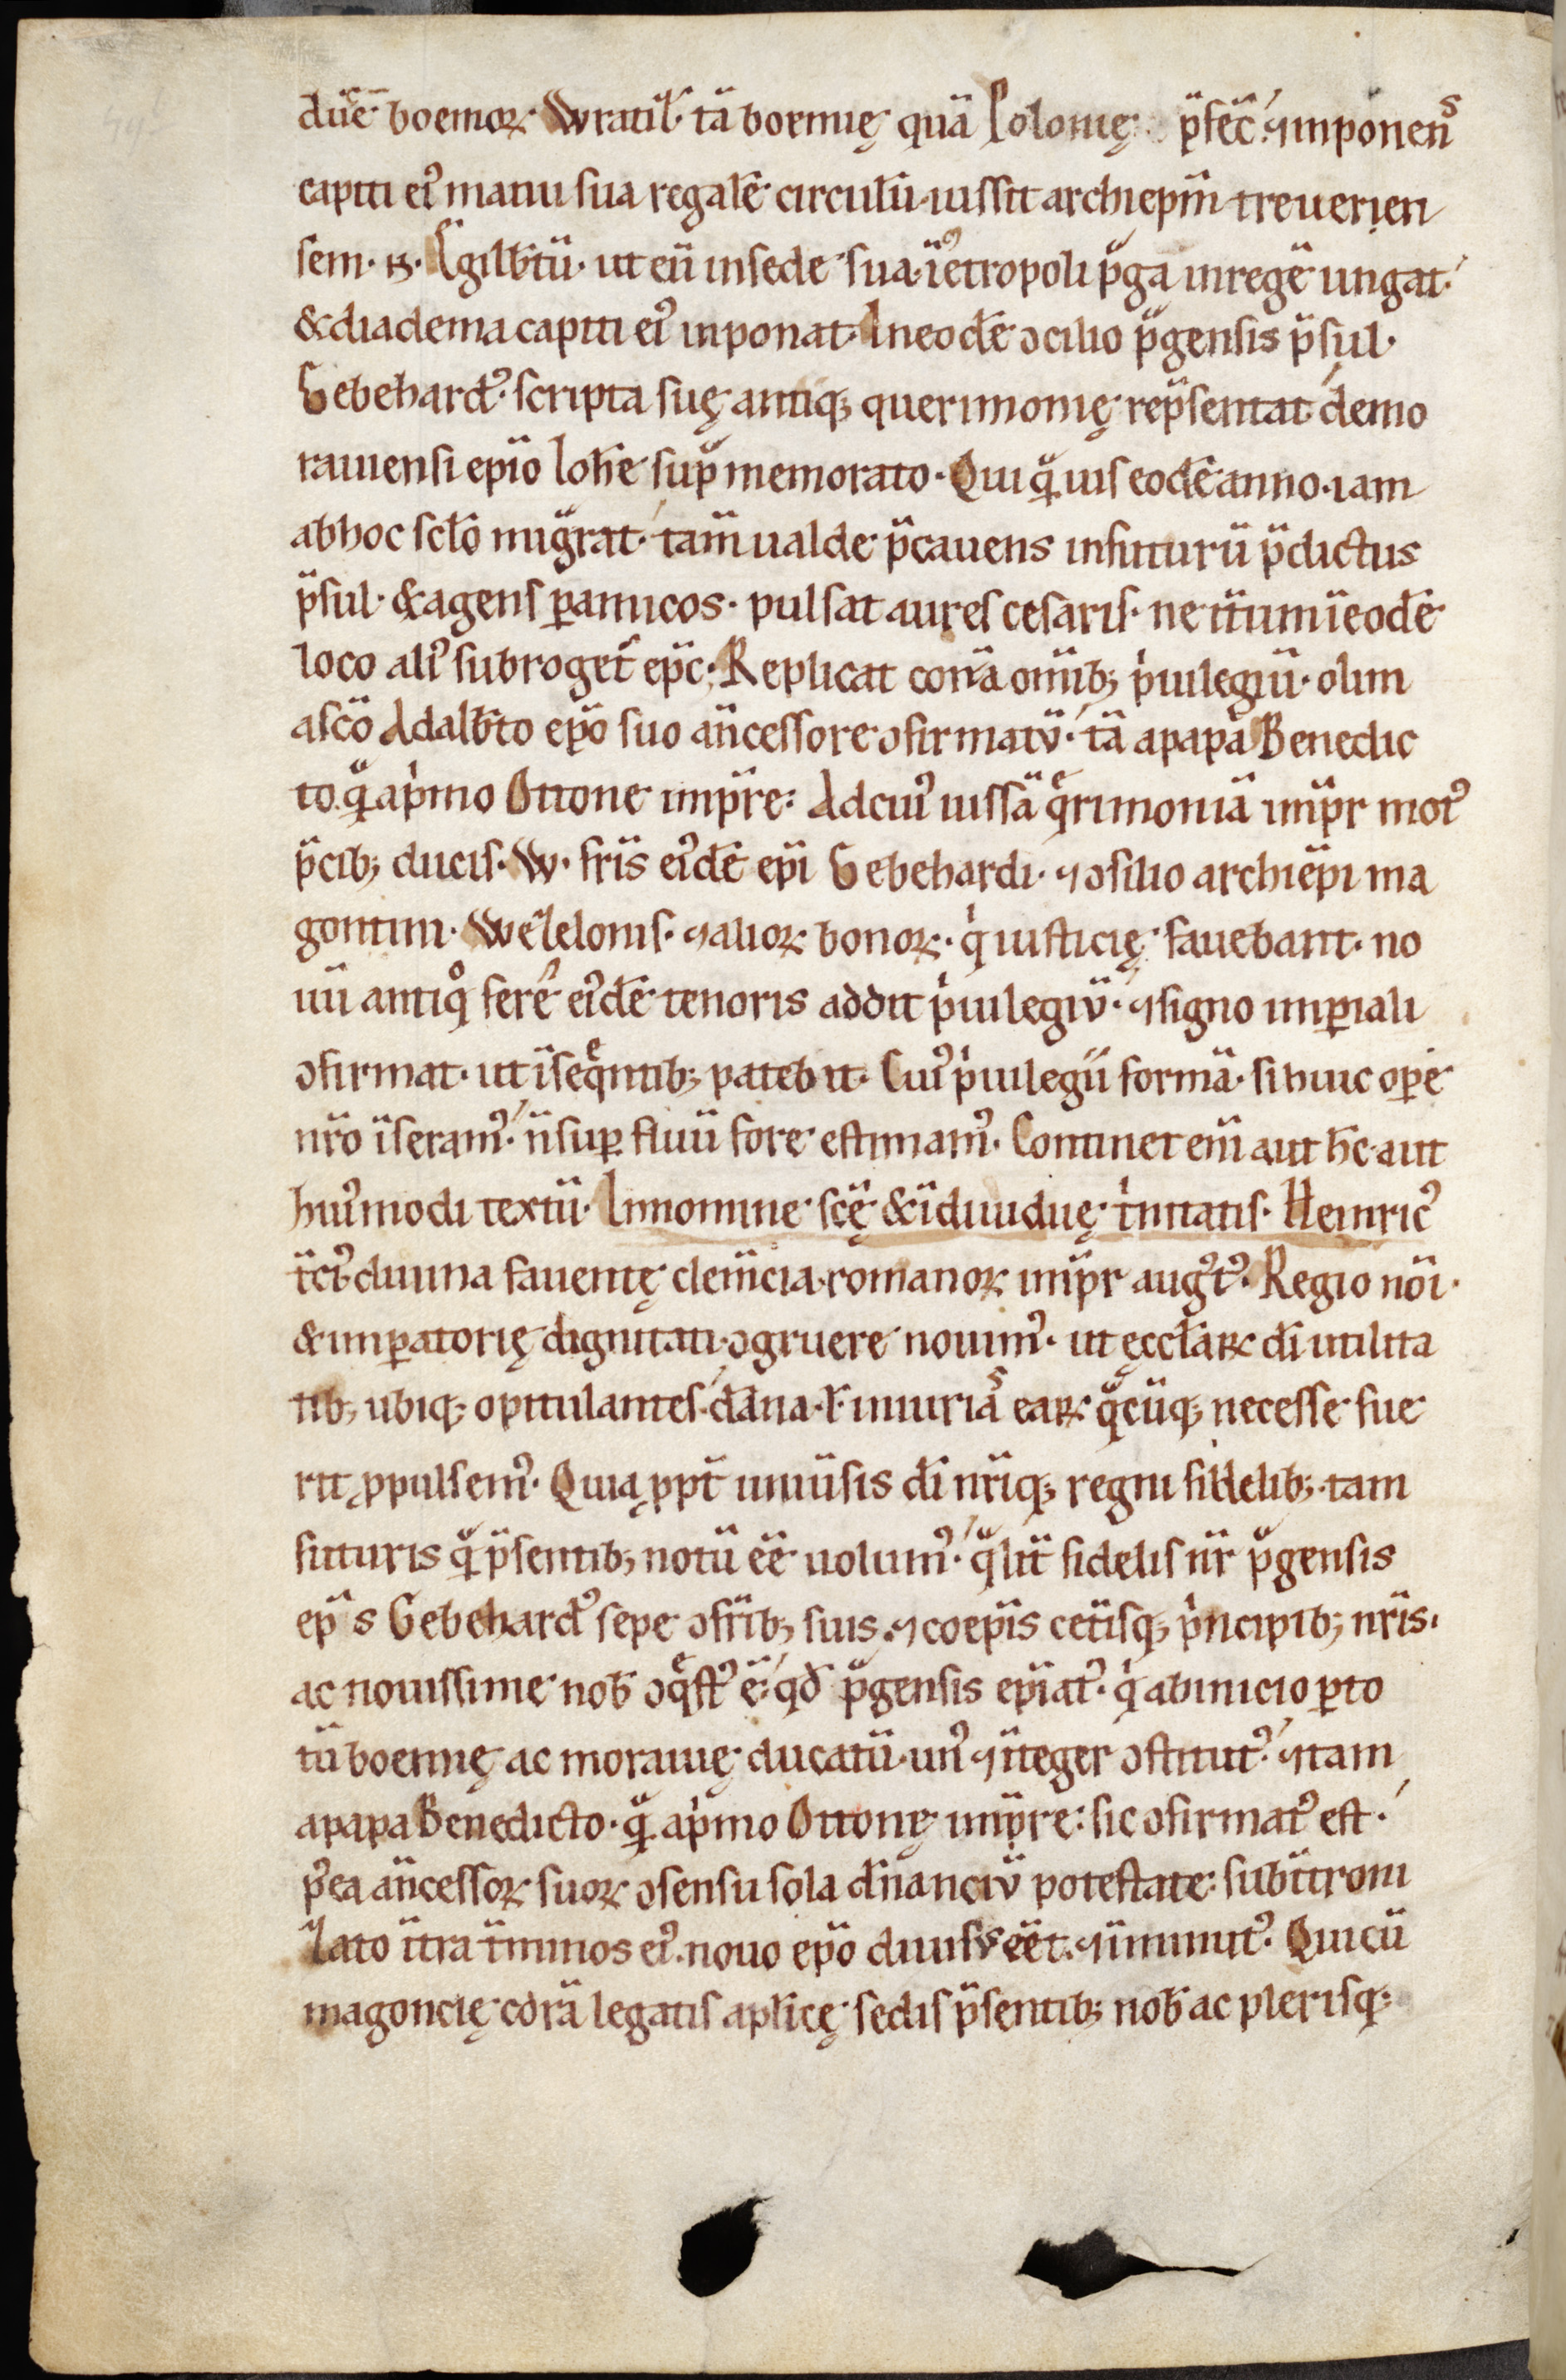 duce̅ boemoꝝ· Wratil̅· ta̅ boemię qua̅ Polonię p̅fec̅· ⁊ inponens
capiti eiꝰ manu sua regale̅ circulu̅· iussit archiep̅m treuerien
sem· n̅· Egilb̅tu̅· ut eu̅ in sede sua· i̅ metropoli p̅ga in rege̅ ungat·
& diadema capiti eiꝰ inponat· In eode̅ ↄcilio p̅gensis p̅sul·
Gebehardꝰ· scripta suę antiq; querimonię rep̅sentat· de mo
rauiensi ep̅io Iohe̅ sup̅memorato· Qui q̅uis eode̅ anno· iam
ab hoc sc̅lo mig̅rat· tam̅ ualde p̅cauens in futuru̅ p̅dictus
p̅sul· & agens ꝑ amicos· pulsat aures cesaris· ne it̅um i̅ eode̅
loco aliꝰ subroget̅ ep̅c· Replicat cora̅ om̅ib; p̅uilegiu̅· olim
a sc̅o Adalb̅to ep̅o suo an̅cessore ↄfirmatu̅· ta̅ a papa Benedic
to q̅ a p̅mo Ottone imp̅re: Ad cuiꝰ iussa̅ q̅rimonia̅ imp̅r motꝰ
p̅cib; ducis· W· fr̅is eiꝰde̅ ep̅i Gebehardi· ⁊ ↄsilio archiep̅i ma
gontini· Wezelonis· ⁊ alioꝝ bonoꝝ· q̅ iusticię fauebant· no
uu̅ antiq̊ fere eiꝰde̅ tenoris addit p̅uilegiu̅· ⁊ signo imꝑiali
ↄfirmat· ut i̅ seq̅ntib; patebit· Cuiꝰ p̅uilegii forma̅· si huic oꝑe
nr̅o i̅seramꝰ· n̅ suꝑfluu̅ fore estimamꝰ· Continet eni̅ aut hc̅· aut
huiꝰmodi textu̅· In nomine sc̅ę & i̅diuiduę t̅nitatis· Heinricꝰ
t̅ciꝰ diuina fauentę clem̅cia romanoꝝ imp̅r augꝰtꝰ· Regio no̅i·
& imꝑatorię dignitati· ↄgruere nouimꝰ· ut ęccl̅aꝝ di̅ utilita
tib; ubiq; opitulantes· da̅na· l̅ iniurias eaꝝ q̅cu̅q; necesse fue
rit ꝓpulsemꝰ· Quiaꝓpt̅ uniu̅sis di̅ nr̅iq; regni fidelib; tam
futuris q̅ p̅sentib; notu̅ ee̅ uolumꝰ· q̅lit̅ fidelis nr̅ p̅gensis
ep̅s Gebehardꝰ sepe ↄfr̅ib; suis· ⁊ coep̅is cet̅isq; p̅ncipib; nr̅is·
ac nouissime nob̅ ↄq̅stꝰ e̅· qd̅ p̅gensis ep̅iatꝰ· q̅ ab inicio ꝑ to
tu̅ boemię ac morauię ducatu̅· unꝰ ⁊ i̅teger ↄstitutꝰ· ⁊ tam
a papa Benedicto· q̅ a p̅mo Ottonę imp̅re: sic ↄfirmatꝰ est·
p̅ea an̅cessoꝝ suoꝝ ↄsensu sola d̅nanciu̅ potestate: subi̅troni
zato i̅tra t̅minos eiꝰ· nouo ep̅o diuisus ee̅t· ⁊ i̅minutꝰ· Qui cu̅
magoncię cora̅ legatis aplic̅ę sedis p̅sentib; nob̅ ac plerisq;